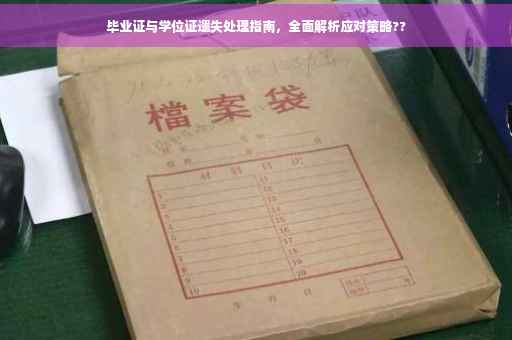 毕业证与学位证遗失处理指南，全面解析应对策略??
檔案袋
材料目次
1 11
2 12
3 13
4 14
5 15
6 16
7 17
8 18
9 19
10 20
年 月 日